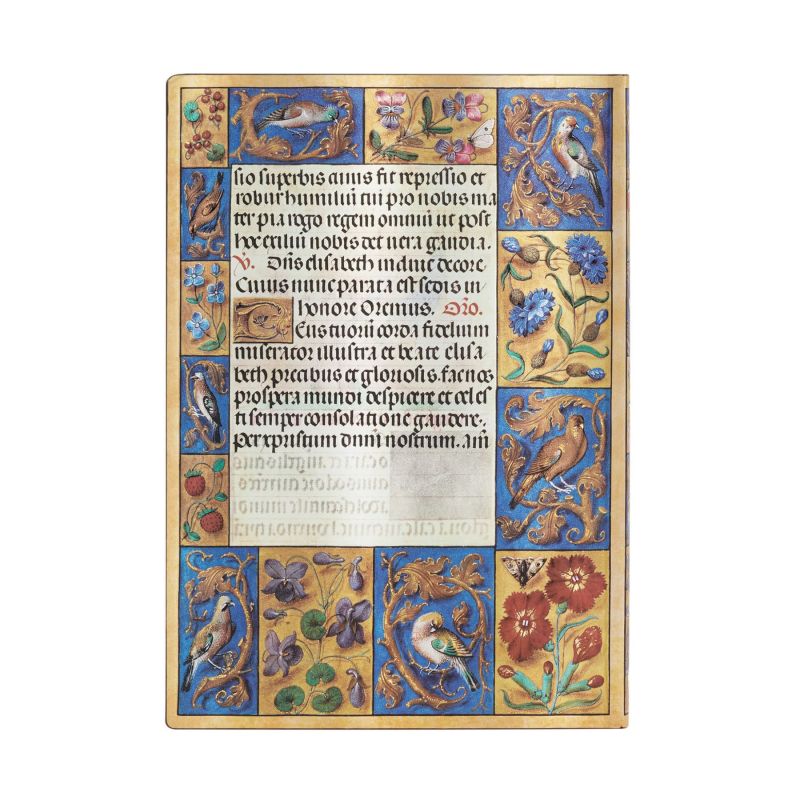 sio superbis cuius fit repressio et
robur humiliū cui pro nobis ma
ter pia rogo regem omniū ut post
hoc exiliū nobis det vera gaudia.
℣. Dn̄s elisabeth induit decore
Cuius nunc parata est sedis in
honore Oremus. Or̄o.
Eus tuorū corda fidelium
miserator illustra et beate elisa
beth precibus et gloriosis. fac nos
prospera mundi despicere et celes
ti semper consolatione gaudere.
per xpristum dnm̄ nostrum. am̄